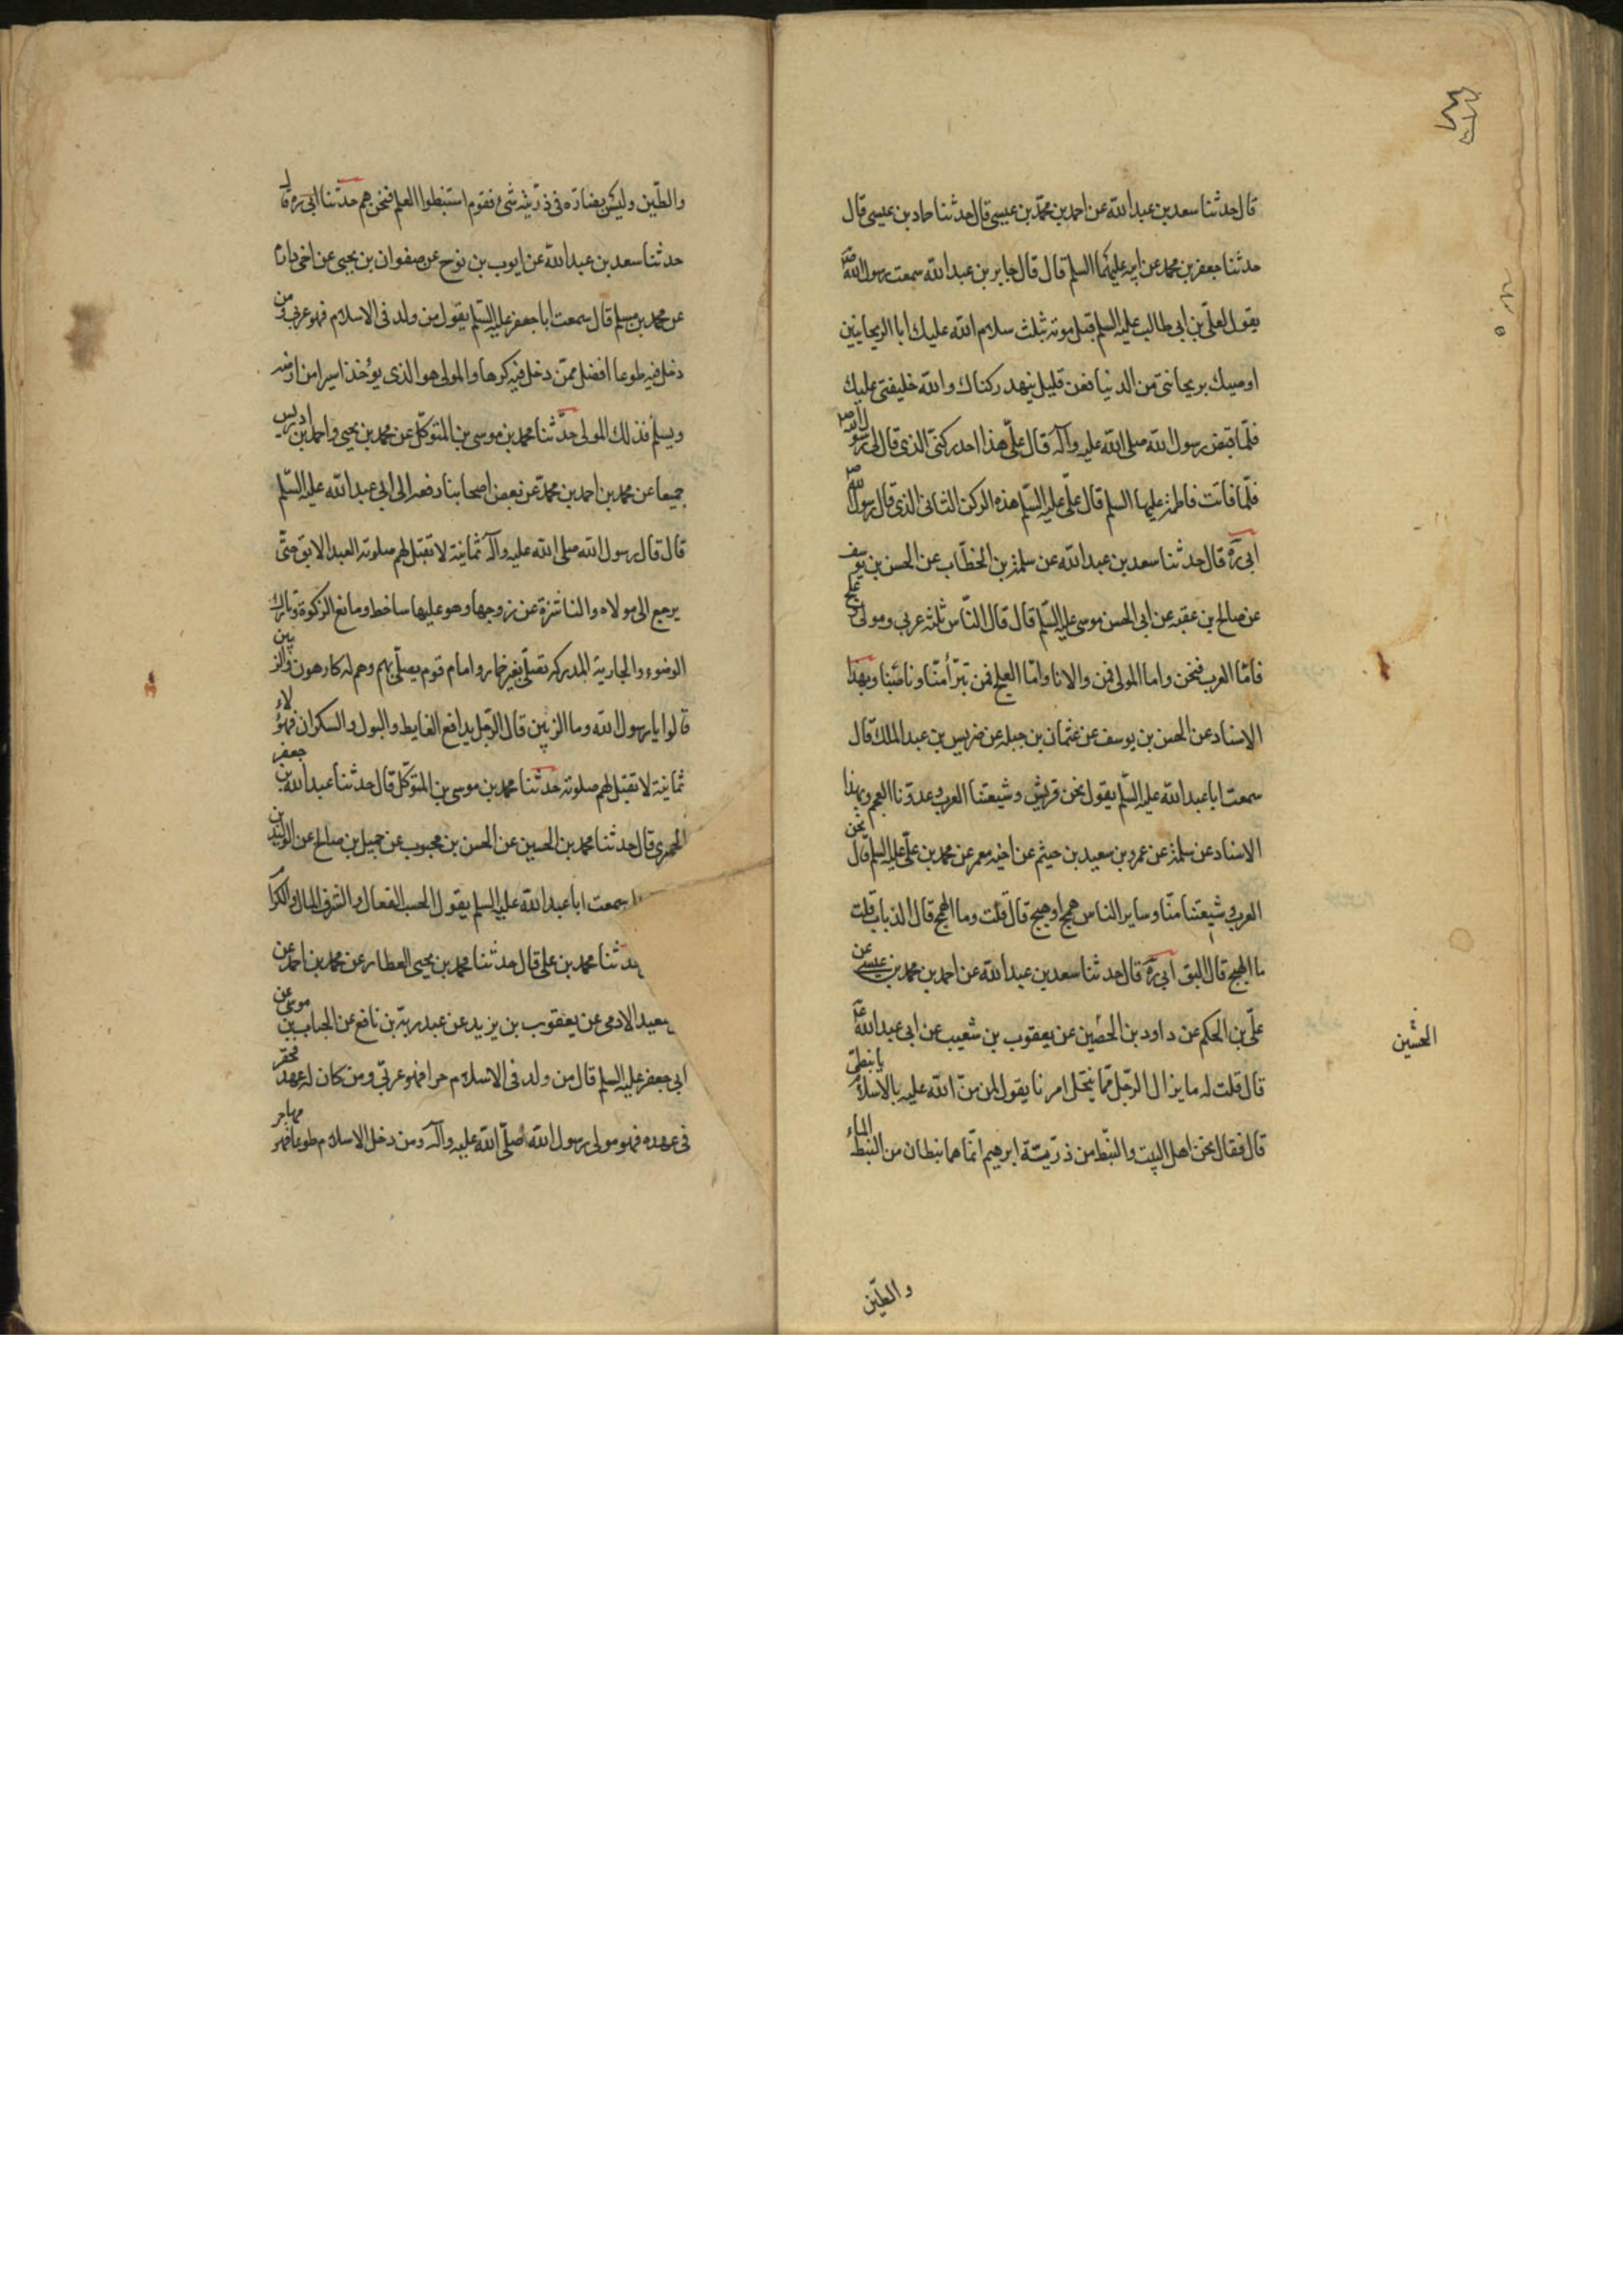 قال حدثنا سعد بن عبد الله عن احمد بن محمد بن عيسى قال حدثنا حماد بن عيسى قال
حدثنا جعفر بن محمد عن ابيه عليهما السلم قال قال جابر بن عبد الله سمعت رسول الله ص
يقول لعلى بن ابى طالب عليه السلم قبل موته بثلث سلام الله عليك ابا الريحانتين
اوصيك بريحانتى من الدنيا فعن قليل ينهد ركناك والله خليفتى عليك
فلما قبض رسول الله صلى الله عليه وآله قال على هذا احد ركنى الذى قال لى رسول الله ص
فلما ماتت فاطمة عليها السلم قال على عليه السلم هذه الركن الثانى الذى قال رسول الله ص
ابى ره قال حدثنا سعد بن عبد الله عن سلمة بن الخطاب عن الحسن بن يوسف
عن صالح بن عقبه عن ابى الحسن موسى عليه السلم قال قال الناس ثلثه عربى ومولى وعلج
فاما العرب فنحن واما المولى فمن والانا واما العلج فمن تبرأ منا وناصبنا وبهذا
الاسناد عن الحسن بن يوسف عن عثمان بن جبله عن ضريس بن عبد الملك قال
سمعت ابا عبد الله عليه السلم يقول نحن قريش وشيعتنا العرب وعدونا العجم وبهذا
الاسناد عن سلمة عن عمرو بن سعيد بن خيثم عن اخيه معمر عن محمد بن على عليه السلم قال نحن
العرب وشيعتنا منا وساير الناس همج او هبج قال قلت وما الهمج قال الذباب قلت
ما الهبج قال البق ابى ره قال حدثنا سعد بن عبد الله عن احمد بن محمد بن عيسى عن
على بن الحكم عن داود بن الحصين عن يعقوب بن شعيب عن ابى عبد الله ع
قال قلت له ما يزال الرجل مما ينتحل امرنا يقول لمن من الله عليه بالاسلام يا نبطى
قال فقال نحن اهل البيت والنبط من ذرية ابرهيم انما هما نبطان من النبط الماء
والطين
والطين وليس بضاره فى ذريته شئ فقوم استنبطوا العلم فنحن هم حدثنا ابى ره قال
حدثنا سعد بن عبد الله عن ايوب بن نوح عن صفوان بن يحيى عن اخى دارم
عن محمد بن مسلم قال سمعت ابا جعفر عليه السلم يقول من ولد فى الاسلام فهو عربى ومن
دخل فيه طوعا افضل ممن دخل فيه كرها والمولى هو الذى يؤخذ اسيرا من ارضه
ويسلم فذلك المولى حدثنا محمد بن موسى بن المتوكل عن محمد بن يحيى واحمد بن ادريس
جميعا عن محمد بن احمد بن محمد عن بعض اصحابنا رفعه الى ابى عبد الله عليه السلم
قال قال رسول الله صلى الله عليه وآله ثمانية لا تقبل لهم صلوته العبد الابق حتى
يرجع الى مولاه والناشزة عن زوجها وهو عليها ساخط ومانع الزكوة وتارك
الوضوء والجارية المدركه تصلى بغير خمار وامام قوم يصلى بهم وهم له كارهون والزبين
قالوا يا رسول الله وما الزبين قال الرجل يدافع الغايط والبول والسكران فهؤلاء
ثمانية لا تقبل لهم صلوته حدثنا محمد بن موسى بن المتوكل قال حدثنا عبد الله بن جعفر
الحميرى قال حدثنا محمد بن الحسين عن الحسن بن محبوب عن جميل بن صالح عن الوليد بن
سمعت ابا عبد الله عليه السلم يقول الحسب الفعال والشرف المال والكرا
حدثنا محمد بن على قال حدثنا محمد بن يحيى العطار عن محمد بن احمد عن
سعيد الادمى عن يعقوب بن يزيد عن عبد ربه بن نافع عن الحباب بن موسى عن
ابى جعفر عليه السلم قال من ولد فى الاسلام حرا فهو عربى ومن كان له عهد فخفر
فى عهده فهو مولى رسول الله صلى الله عليه وآله ومن دخل الاسلام طوعا فهو مهاجر